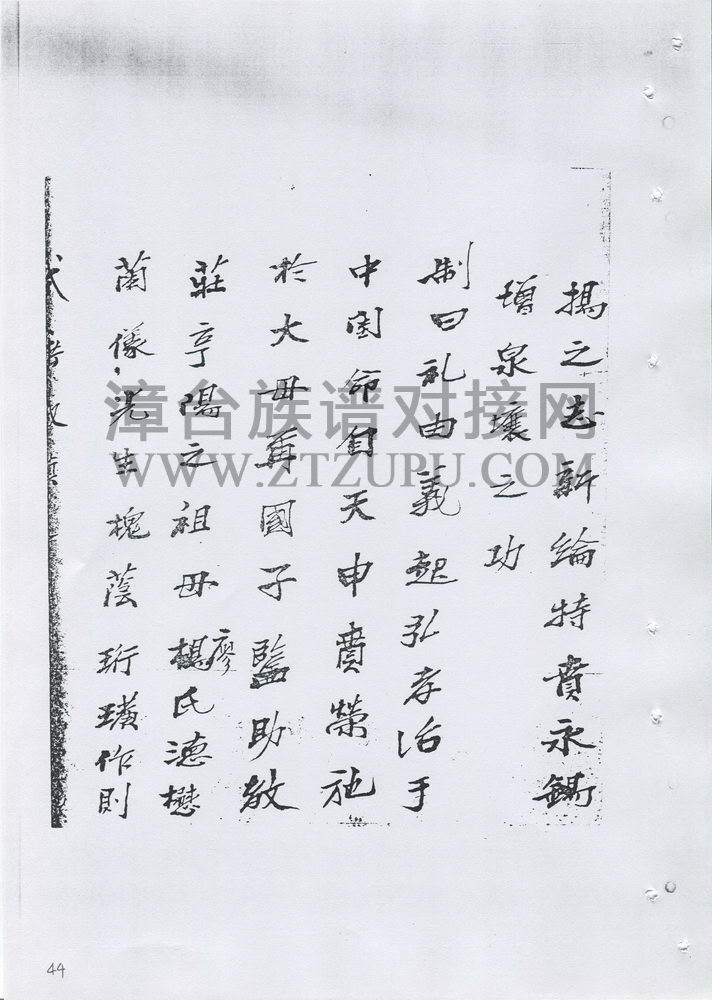 搗之志新綸特賁永錫
增泉壤之功
制曰礼由義起弘孝治于
中国命自天申賁榮施
於大母尔國子監助教
莊亨陽之祖母楊廖氏德懋
蘭儀先生槐蔭珩璜作則
漳台族谱对接网
WWW.ZTZUPU.COM
44